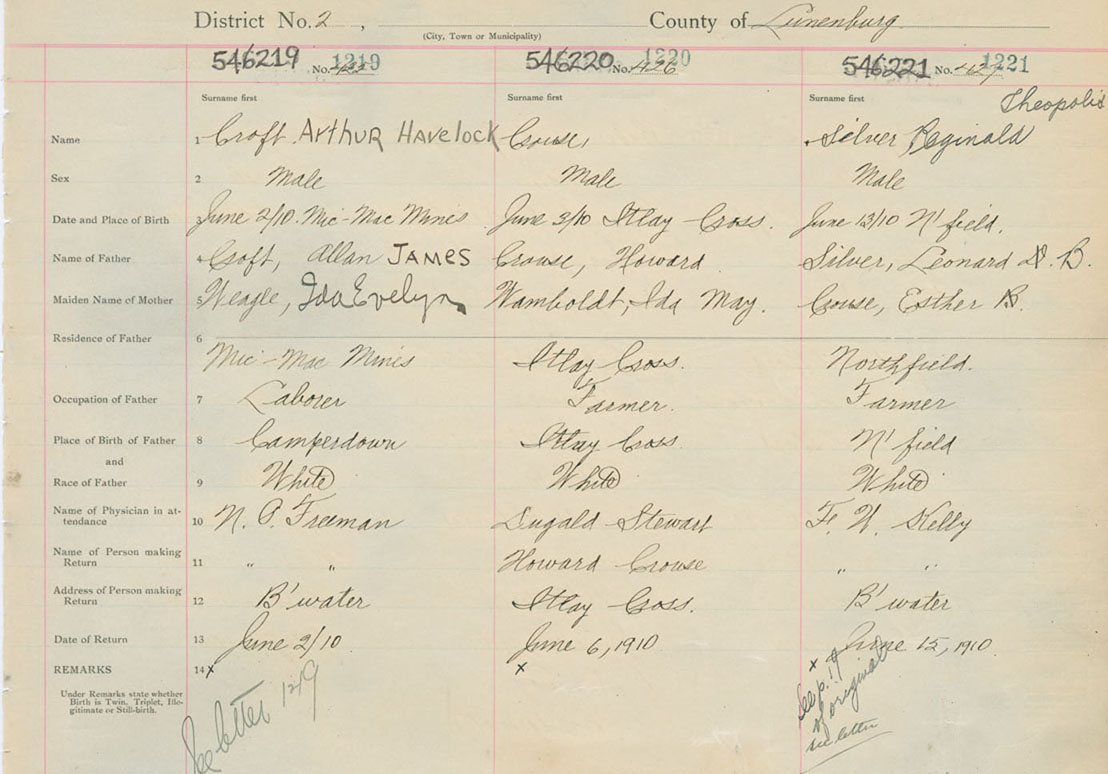 District No. 2, County of Lunenburg
(City, Town or Municipality)
546219 No. 1219 546220 No. 426 1220 546221 No. 427 1221
Surname first Surname first Surname first Theopolis
Name 1 Croft Arthur Havelock Crouse, Silver Reginald
Sex 2 Male Male Male
Date and Place of Birth 3 June 2/10. Mic-Mac Mines June 3/10 Itlay Cross. June 13/10 N'field.
Name of Father 4 Croft, Allan JAMES Crouse, Howard Silver, Leonard B.
Maiden Name of Mother 5 Weagle, Ida Evelyn Wamboldt, Ida May. Crouse, Esther B.
Residence of Father 6
Mic-Mac Mines Itlay Cross. Northfield.
Occupation of Father 7 Laborer Farmer. Farmer
Place of Birth of Father 8 Camperdown Itlay Cross N'field
and
Race of Father 9 White White White
Name of Physician in at-
tendance 10 N. P. Freeman Dugald Stewart F. W. Kelly
Name of Person making
Return 11 " " Howard Crouse " "
Address of Person making
Return 12 B'water Itlay Cross. B'water
Date of Return 13 June 2/10 June 6, 1910 June 15, 1910
REMARKS 14 x x x
Under Remarks state whether
Birth is Twin, Triplet, Ille-
gitimate or Still-birth.
See letter 1219
See p. 19
of original
see letter